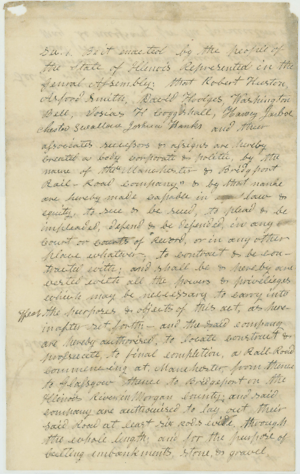 Sec. 1. Be it enacted by the people of
the State of Illinois Represented in the
General Assembly, that Robert Huston,
Smith, David Hodges, Washington
Bell, Josias H Coggshall, Harvey
chester Swallow Joshua Hanks and their
associates successors & assigns are hereby
created a body corporate & politic, by the
name of the "Manchester & Bridgport
Rail-Road company" & by that name
are hereby made capable in law &
equity, to sue & be sued, to plead & be
impleaded, defend & be defended, in any
Court or courts of Record, or in any other
place whatever, to contract & be con-
tracted with, and shall be & hereby are
vested with all the powers & privileges
which may be necessary to carry into
effect the purposes & objects of this act, as here-
inafter set forth - and the said company
are hereby authorised, to locate construct &
prosecute, to final completion, a Rail Road
commencing at Manchester, from thence
to Glasgow thence to Bridgeport on the
Illinois River in Morgan County; and said
company are authorised to lay out, their
said Road at least six rods wide, through
the whole length, and for the purpose of
cutting embankments, stone, & gravel